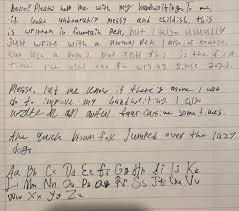 Hello! Please help me with my handwriting. To me,
it looks unbearably messy and childish. This
is written in fountain pen, but I also usually
just write with a normal pen. I also, of course,
can use a pencil. But TBH this is the first
time I've used one to writing since 2023.
Please, let me know if there's more I can
do to improve my handwriting. I also
write in an awful faux cursive sometimes.
The quick brown fox jumped over the lazy
dogs.
Aa Bb Cc Dd Ee Ff Gg Hh Ii Jj Kk
Ll Mm Nn Oo Pp Qq Rr Ss Tt Uu Vv
Ww Xx Yy Zz